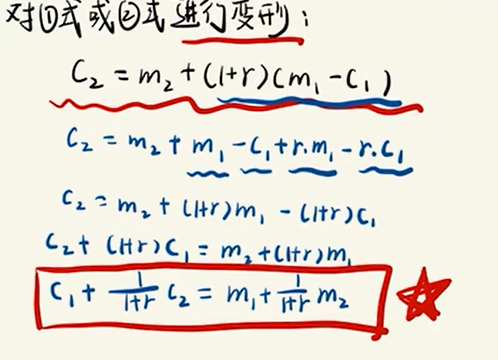 对①式或②式进行变形：
C₂ = m₂ + (1+r)(m₁ - C₁)
C₂ = m₂ + m₁ - C₁ + r.m₁ - r.C₁
C₂ = m₂ + (1+r)m₁ - (1+r)C₁
C₂ + (1+r)C₁ = m₂ + (1+r)m₁
C₁ + \frac{1}{1+r} C₂ = m₁ + \frac{1}{1+r} m₂